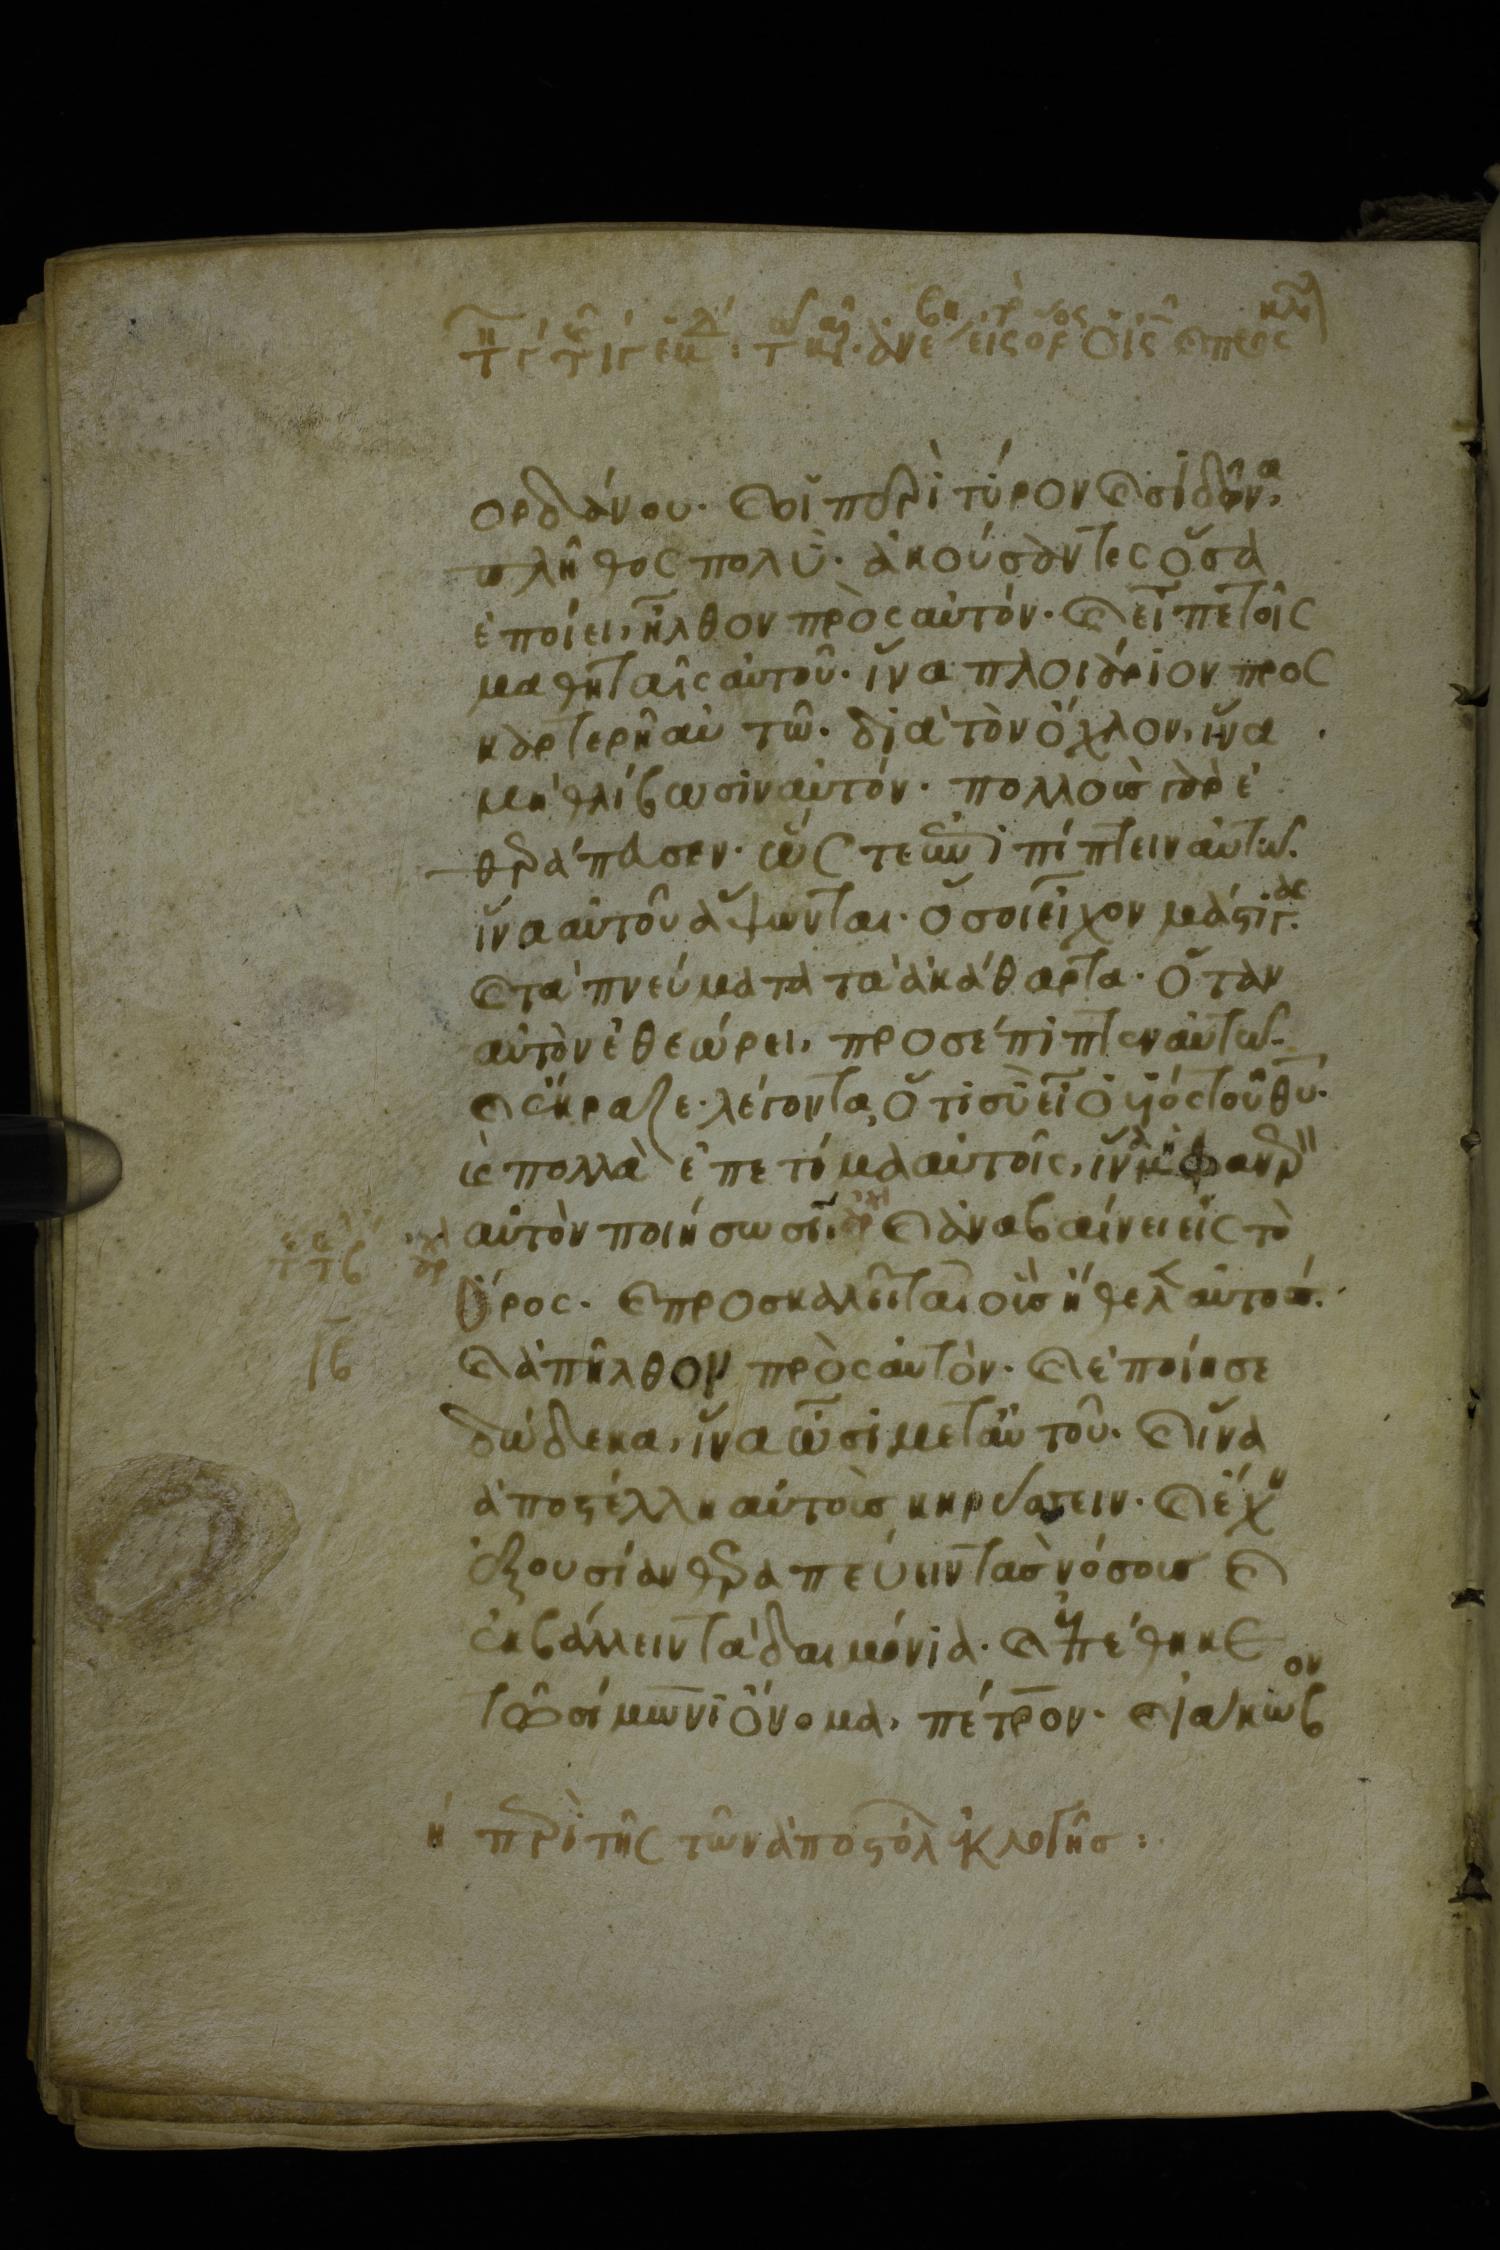 ορδάνου· καὶ οἱ περὶ τύρον καὶ σιδῶνα,
πλῆθος πολὺ· ἀκούσαντες ὅσα
ἐποίει, ἦλθον πρὸς αὐτόν· καὶ εἶπε τοῖς
μαθηταῖς αὐτοῦ· ἵνα πλοιάριον προς
καρτερῆ αὐτῶ· διὰ τὸν ὄχλον, ἵνα
μὴ θλίβωσιν αὐτόν· πολλοὺς γὰρ ἐ
θεράπευσεν· ὥς τε ἐπιπίπτειν αὐτῶ·
ἵνα αὐτοῦ ἅψωνται· ὅσοι εἶχον μάστιγας·
καὶ τὰ πνεύματα τὰ ἀκάθαρτα· ὅταν
αὐτὸν ἐθεώρει, προσέπιπτεν αὐτῶ·
καὶ ἔκραζε· λέγοντα, ὅτι σὺ εἶ ὁ υἱός τοῦ θυ·
καὶ πολλὰ ἐπετίμα αὐτοῖς, ἵνα μὴ φανερὸν
αὐτὸν ποιήσωσιν· καὶ ἀναβαίνει εἰς τὸ
ὄρος· καὶ προσκαλεῖται οὓς ἤθελεν αὐτός·
καὶ ἀπῆλθον πρὸς αὐτὸν· καὶ ἐποίησε
δώδεκα, ἵνα ὦσι μετ αὐτοῦ· καὶ ἵνα
ἀποστέλλη αὐτοὺς κηρύσσειν· καὶ ἔχειν
ἐξουσίαν θεραπεύειν τὰς νόσους καὶ
ἐκβάλλειν τὰ δαιμόνια· καὶ ἐπέθηκε
τῶ σίμωνι ὄνομα, πέτρον· καὶ ἰάκωβον
η περὶ τῆς τῶν ἀποστόλων ἐκλογῆς :